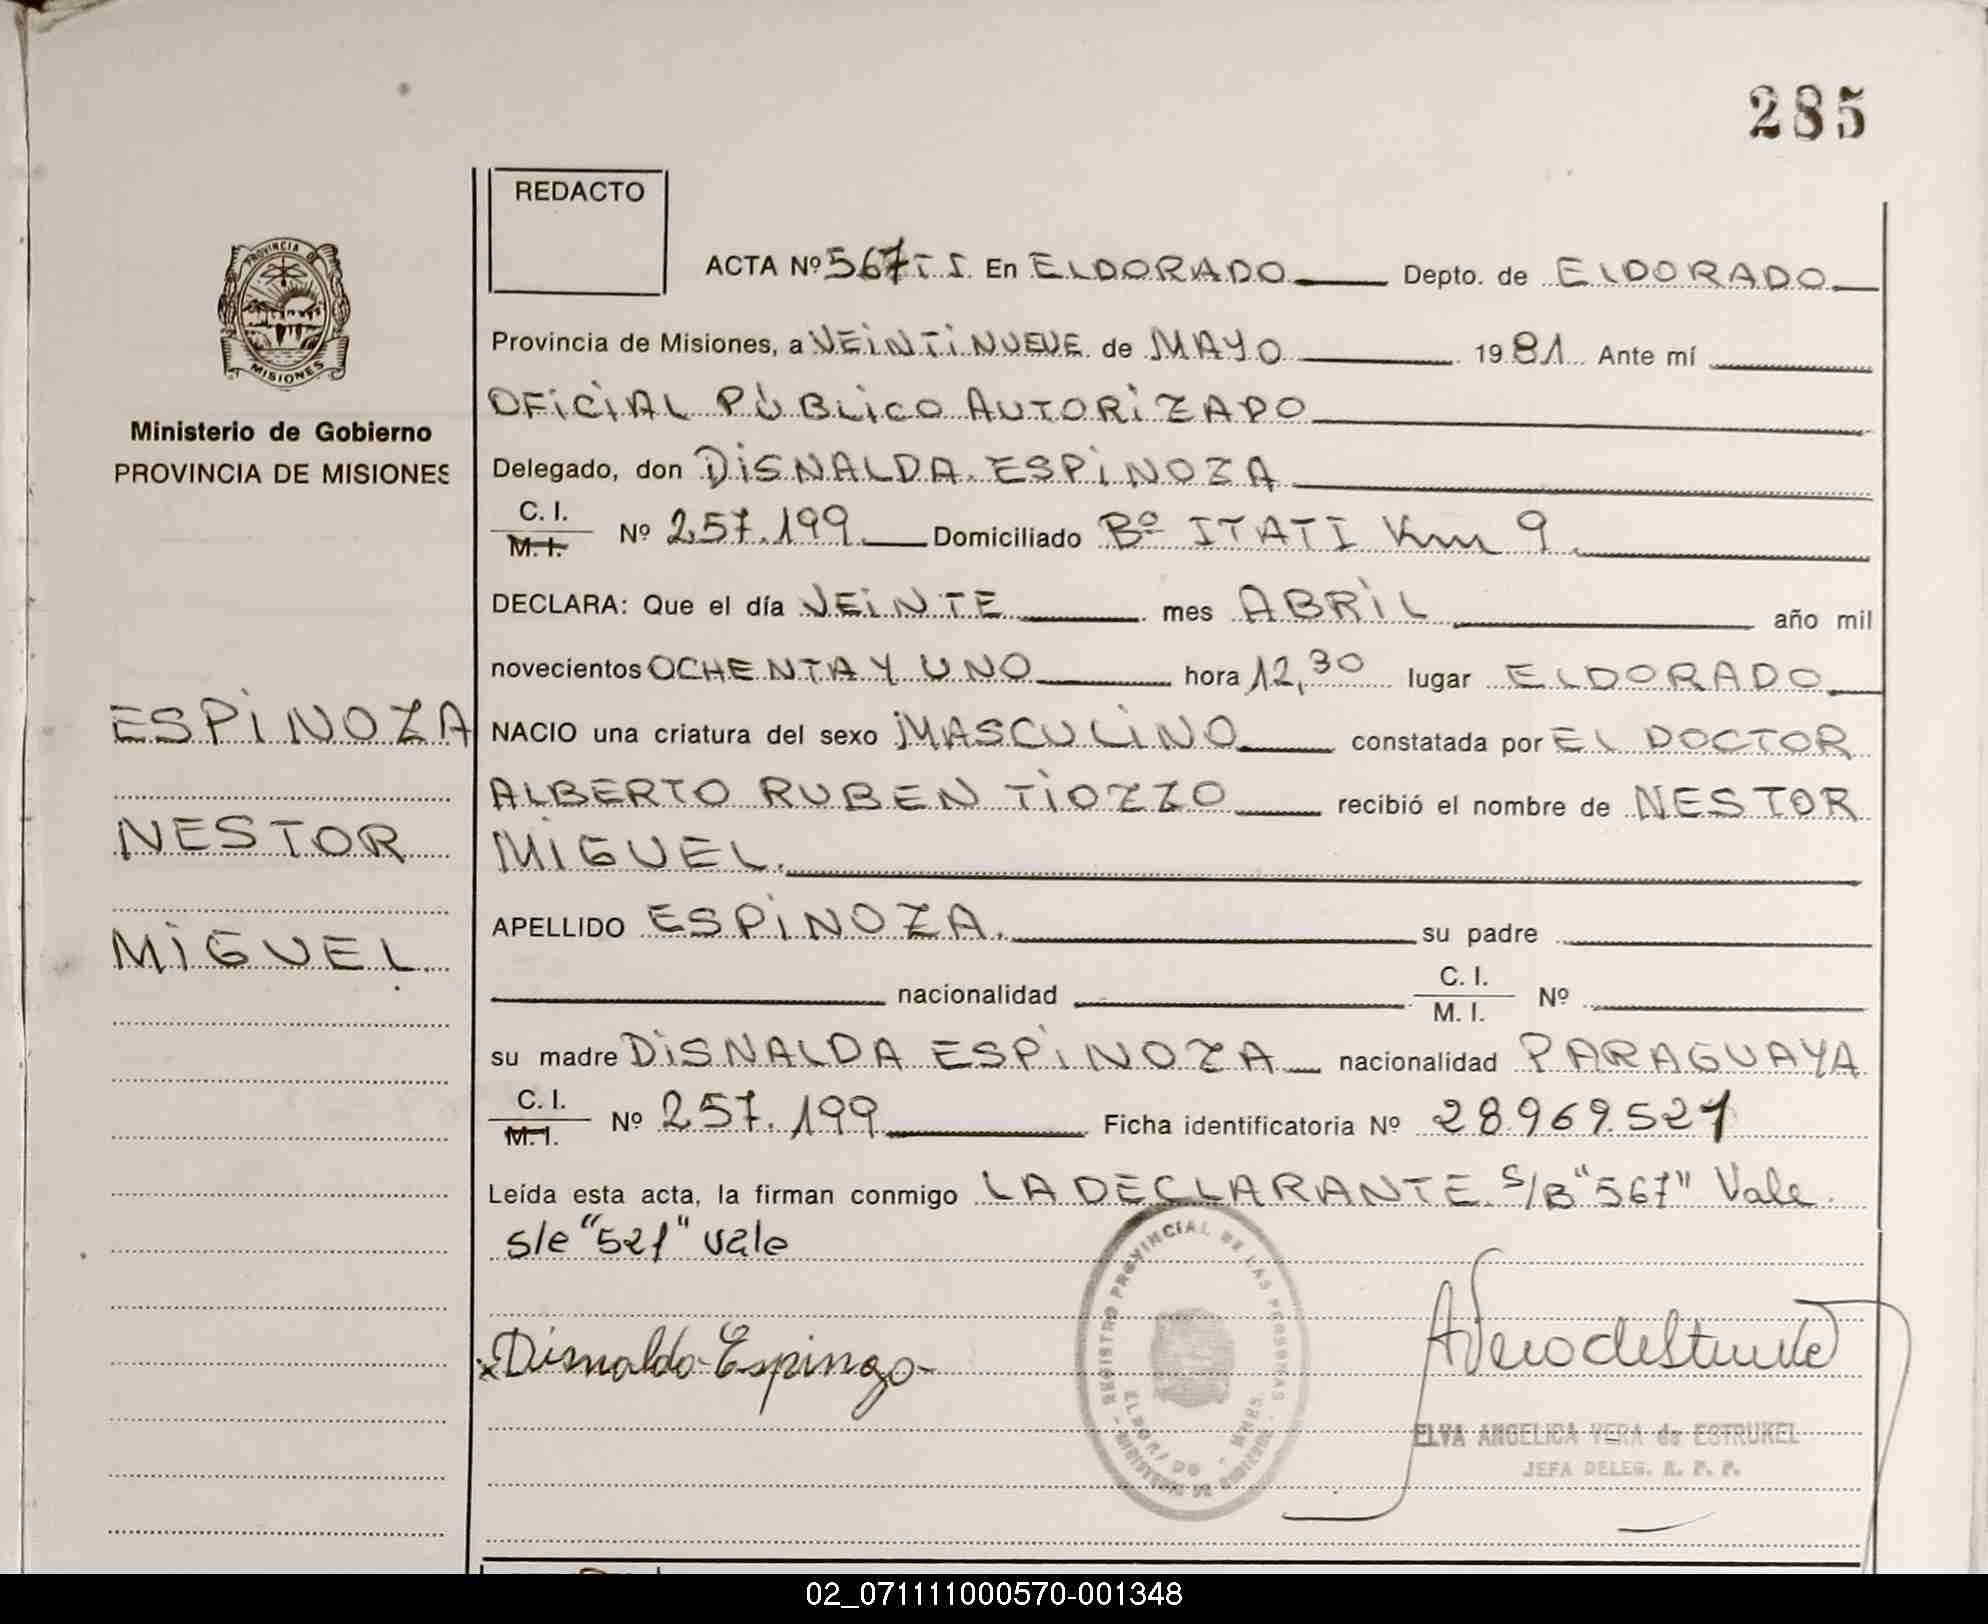 285
REDACTO
PROVINCIA DE
MISIONES
Ministerio de Gobierno
PROVINCIA DE MISIONES
ACTA Nº 567 T I. En ELDORADO Depto. de ELDORADO
Provincia de Misiones, a VEINTINUEVE de MAYO 1981 Ante mí
OFICIAL PÚBLICO AUTORIZADO
Delegado, don DISNALDA ESPINOZA
C. I.
M. I. Nº 257.199 Domiciliado Bº ITATI Km 9
DECLARA: Que el día VEINTE mes ABRIL año mil
novecientos OCHENTA Y UNO hora 12,30 lugar ELDORADO
ESPINOZA
NACIO una criatura del sexo MASCULINO constatada por EL DOCTOR
ALBERTO RUBEN TIOZZO recibió el nombre de NESTOR
NESTOR
MIGUEL.
APELLIDO ESPINOZA. su padre
MIGUEL.
nacionalidad C. I. M. I. Nº
su madre DISNALDA ESPINOZA nacionalidad PARAGUAYA
C. I.
M. I. Nº 257.199 Ficha identificatoria Nº 28969521
Leída esta acta, la firman conmigo LA DECLARANTE. S/B "567" Vale.
s/e "521" vale
REGISTRO PROVINCIAL DE LAS PERSONAS
ELDORADO - MNES.
MINISTERIO DE GOBIERNO
x Disnalda Espinoza
ELVA ANGELICA VERA de ESTRUKEL
JEFA DELEG. R. P. P.
02_071111000570-001348